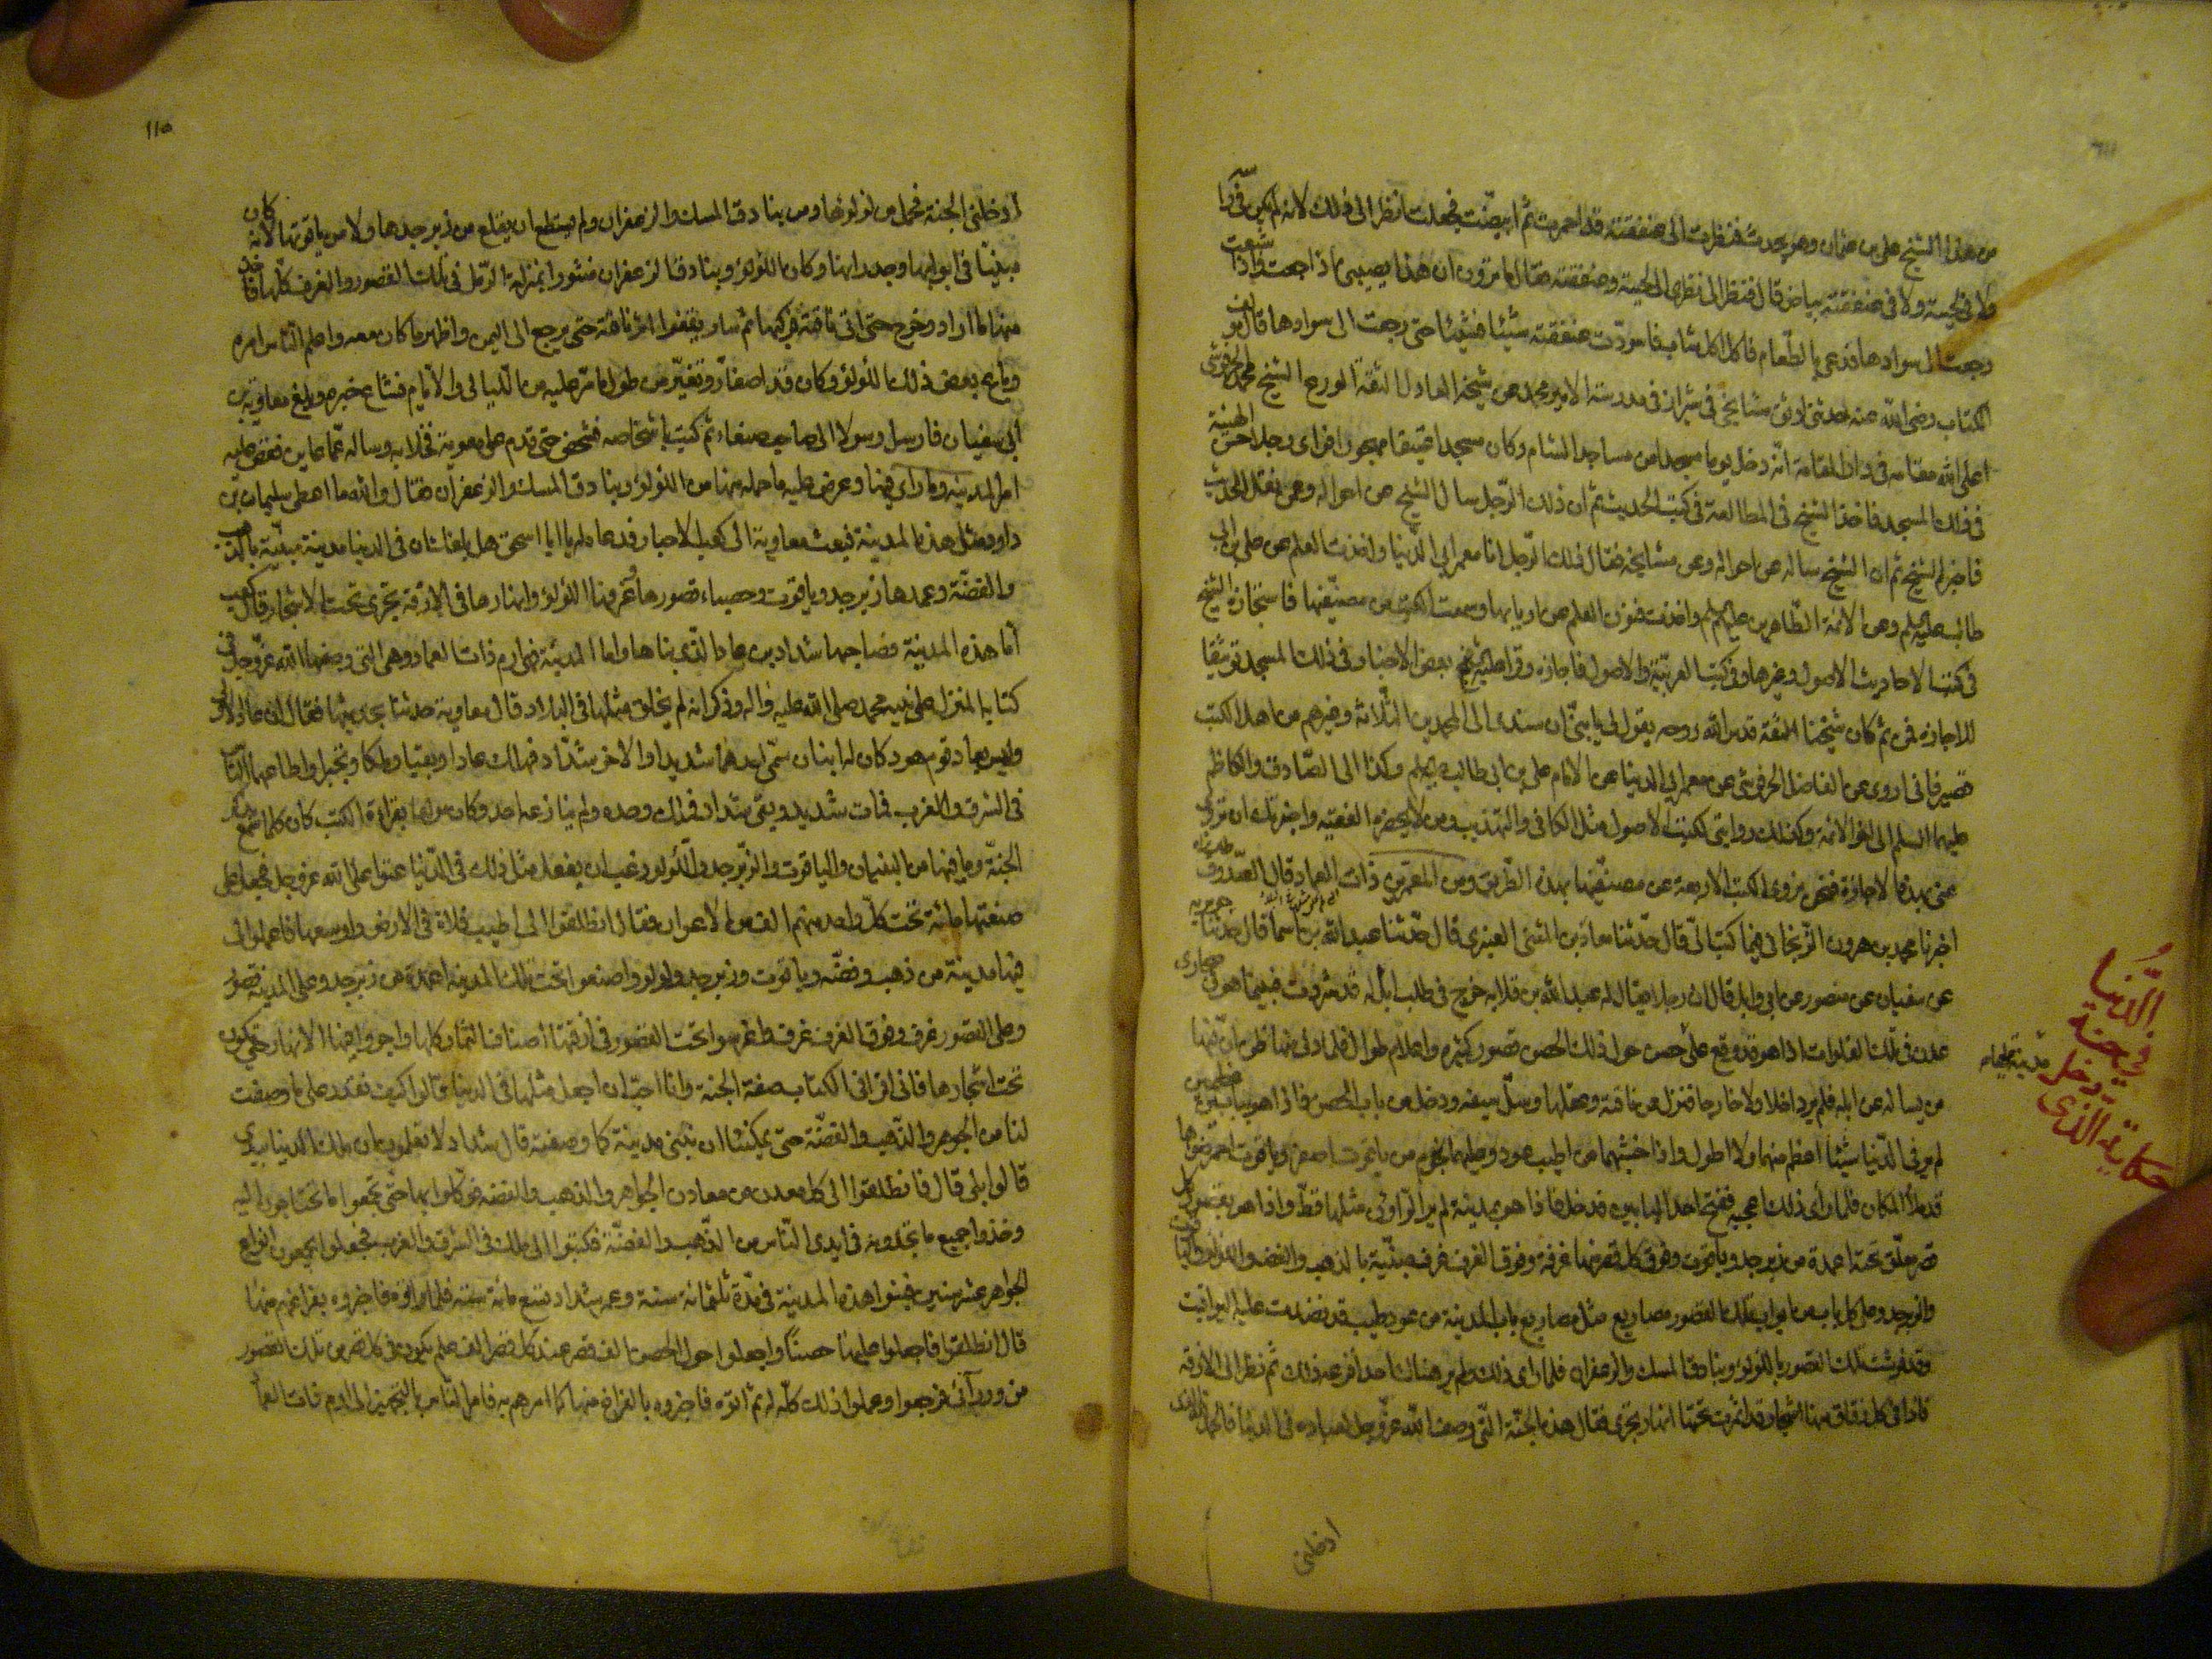 من هذا الشيخ علي بن عثمان وهو يحدث فنظرت الى عنفقته قد احمرت ثم ابيضت فجعلت انظر الى ذلك لانه لم يكن في راسه
ولا في لحيته ولا في عنفقته بياض قال فنظر الى نظري الى لحيته وعنفقته فقال اما ترون ان هذا يصيبني اذا جعت فاذا شبعت
رجعت الى سوادها فدعى بالطعام فاكل اكل شاب فاسودّت عنفقته شيئا فشيئا حتى رجعت الى سوادها قال مؤلف
الكتاب رضي الله عنه حدثني اوثق مشايخي في شيراز في مدرسة الامير محمد عن شيخه العادل الثقة الورع الشيخ محمد الحرفوشي
اعلى الله مقامه في دار المقامة انّه دخل يوما مسجدا من مساجد الشام وكان مسجدا عتيقا مهجورا فراى رجلا حسن الهيئة
في ذلك المسجد فاخذ الشيخ في المطالعة في كتب الحديث ثم ان ذلك الرّجل سال الشيخ عن احواله وعمن نقل الحديث
فاخبره الشيخ ثم ان الشيخ ساله عن احواله وعن مشايخه فقال ذلك الرّجل انا معمر ابي الدّنيا واخذت العلم عن علي بن ابي
طالب عليه السلم وعن الائمة الطّاهرين عليهم السلم واخذت فنون العلم عن اربابها وسمعت الكتب من مصنّفيها فاستجازه الشيخ
في كتب الاحاديث الاصول وغيرها وفي كتب العربيّة والاصول فاجازه وقرا عليه الشيخ بعض الاخبار في ذلك المسجد توثيقا
للاجازة فمن ثم كان شيخنا الثقة قدس الله روحه يقول لي يا بنيّ ان سندي الى المحمدين الثلاثة وغيرهم من اهل الكتب
قصير فاني اروي عن الفاضل الحرفوشي عن معمر ابي الدنيا عن الامام علي بن ابي طالب عليه السلم وكذا الى الصّادق والكاظم
عليهما السلم الى اخر الائمة وكذلك روايتي لكتب الاصول مثل الكافي والتهذيب ومن لا يحضره الفقيه واجزتك ان تروي
عني بهذه الاجازة فنحن نروي الكتب الاربعة عن مصنّفيها بهذه الطّريق ومن المعمّرين ذات العماد قال الصّدوق طاب ثراه
اخبرنا محمد بن هرون الزنجاني فيما كتب اليّ قال حدّثنا معاذ بن المثنى العنبري قال حدّثنا عبد الله بن اسما قال حدثنا جويريه
عن سفيان عن منصور عن ابي وايل قال ان رجلا يقال له عبد الله بن قلابه خرج في طلب ابل له قد شردت فبينما هو في صحاري
عدن في تلك الفلوات اذا هو قد وقع على حصن حول ذلك الحصن قصور كثيرة واعلام طوال فلما دنى منها ظن ان فيها
من يساله عن ابله فلم ير داخلا ولا خارجا فنزل عن ناقته وعقلها وسلّ سيفه ودخل من باب الحصن فاذا هو ببابين عظيمين
لم ير في الدّنيا شيئا اعظم منهما ولا اطول واذا خشبهما من اطيب عود وعليهما نجوم من ياقوت اصفر وياقوت احمر ضوءها
قد ملأ المكان فلما راى ذلك اعجبه ففتح احد البابين فدخل فاذا هو بمدينة لم ير الرّاؤن مثلها قط واذا هو بقصور كل
قصر معلّق تحته اعمدة من زبرجد وياقوت وفوق كل قصر منها غرفة وفوق الغرف غرف مبنيّة بالذهب والفضه واللؤلؤ والياقوت
والزبرجد وعلى كل باب من ابواب تلك القصور مصاريع مثل مصاريع باب المدينة من عود طيب قد نضدت عليه اليواقيت
وقد فرشت تلك القصور باللؤلؤ وبنادق المسك والزعفران فلما راى ذلك ولم ير هناك احدا فزعه ذلك ثم نظر الى الازقة
فاذا في كل زقاق منها اشجار قد اثمرت تحتها انهار تجري فقال هذه الجنّة التي وصف الله عزّ وجل لعباده في الدنيا فالحمد لله الذي
ادخلني
حكاية الذي
دخل
في جنة
الدّنيا
115
ادخلني الجنة فحمل من لؤلؤها ومن بنادق المسك والزعفران ولم يستطع ان يقلع من زبرجدها ولا من ياقوتها لانه كان
مبنيّا في ابوابها وجدرانها وكان اللؤلؤ وبنادق الزعفران منثورا بمنزلة الرّمل في تلك القصور والغرف كلها فاخذ
منها ما اراد وخرج حتى اتى ناقته فركبها ثم سار يقفوا اثر ناقته حتى رجع الى اليمن واظهر ما كان معه واعلم الناس امره
وباع بعض ذلك اللؤلؤ وكان قد اصفارّ وتغيّر من طول ما مرّ عليه من اللّيالي والايّام فشاع خبره وبلغ معاوية بن
ابي سفيان فارسل رسولا الى صاحب صنعاء ثم كتب باشخاصه فشخص حتى قدم على معوية فخلا به وساله عما عاين فقص عليه
امر المدينة وما راى فيها وعرض عليه ما حمله منها من اللؤلؤ وبنادق المسك والزعفران فقال والله ما اعطى سليمان بن
داود مثل هذه المدينة فبعث معاوية الى كعب الاحبار فدعاه فقال يا ابا اسحق هل بلغك ان في الدنيا مدينة مبنيّة بالذهب
والفضّة وعمدها زبرجد وياقوت وحصباء قصورها وغرفها اللؤلؤ وانهارها في الازقة تجري تحت الاشجار قال كعب
امّا هذه المدينة فصاحبها شداد بن عاد الذي بناها واما المدينة فهي ارم ذات العماد وهي التي وصفها الله عزّ وجل في
كتابه المنزل على نبيه محمد صلى الله عليه واله وذكر انه لم يخلق مثلها في البلاد قال معاوية حدثنا بحديثها فقال ان عادا الاولى
وليس بعاد قوم هود كان له ابنان سمّي احدهما شديدا والاخر شدّاد فهلك عاد وبقيا وملكا وتجبّرا واطاعهما الناس
في الشرق والغرب فمات شديد وبقي شداد فملك وحده ولم ينازعه احد وكان مولعا بقراءة الكتب كان كلما سمع بذكر
الجنّة وما فيها من البنيان والياقوت والزبرجد واللّؤلؤ رغب ان يفعل مثل ذلك في الدّنيا عتوا على الله عز وجل فجعل على
صنعتها مائة تحت كلّ واحد منهم الف من الاعوان فقال انطلقوا الى اطيب فلاة في الارض واوسعها فاعملوا لي
فيها مدينة من ذهب وفضّه وياقوت وزبرجد ولؤلؤ واصنعوا تحت تلك المدينة اعمدة من زبرجد وعلى المدينة قصور
وعلى القصور غرف وفوق الغرف غرف واغرسوا تحت القصور في ازقتها اصناف الثمار كلها واجروا فيها الانهار حتى يكون
تحت اشجارها فاني اقرا في الكتاب صفة الجنة وانا احبّ ان اجعل مثلها في الدنيا قالوا كيف نقدر على ما وصفت
لنا من الجوهر والذّهب والفضّة حتى يمكننا ان نبني مدينة كما وصفت قال شداد لا تعلمون ان ملك الدنيا بيدي
قالوا بلى قال فانطلقوا الى كل معدن من معادن الجواهر والذهب والفضه فوكلوا بها حتى تجمعوا ما تحتاجون اليه
وخذوا جميع ما تجدونه في ايدي النّاس من الذّهب والفضّة فكتبوا الى ملك في الشرق والغرب فجعلوا يجمعون انواع
الجواهر عشر سنين فبنوا هذه المدينة في مدّة ثلثمائة سنة وعمر شداد تسع مائة سنة فلما اتوه فاخبروه بفراغهم منها
قال انطلقوا فاجعلوا عليها حصنًا واجعلوا حول الحصن الف قصر عند كل قصر الف علم يكون في كل قصر من تلك القصور
من وزرآئي فرجعوا وعملوا ذلك كلّه له ثم اتوه فاخبروه بالفراغ منها كما امرهم به فامر الناس بالتجهيز الى ارم ذات العماد